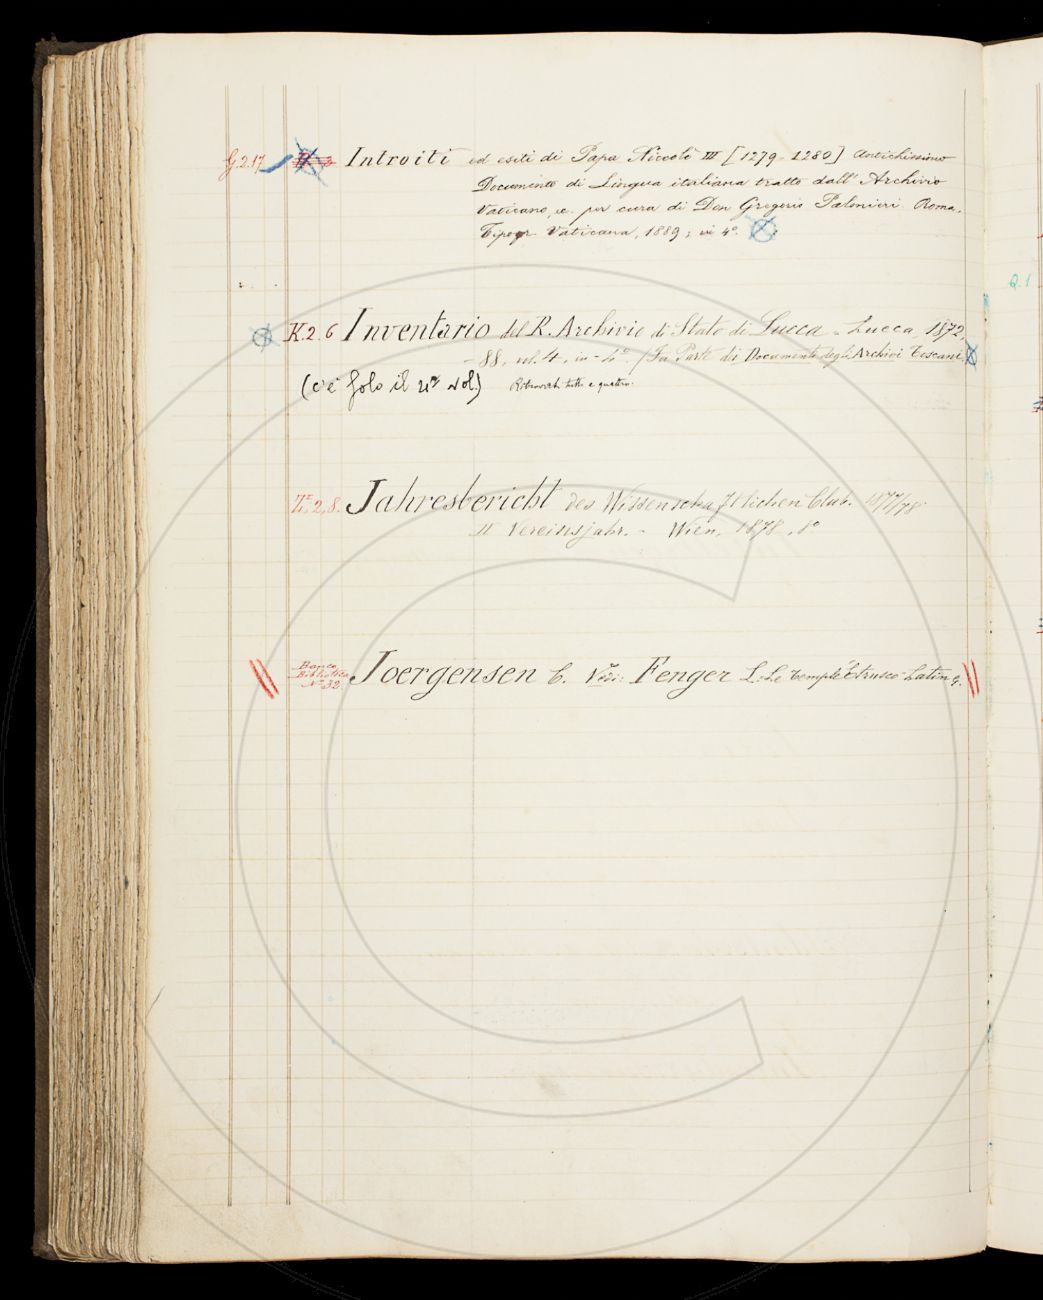 G.2.17 Introiti ed esiti di Papa Niccolò III [1279-1280] Antichissimo
Documento di Lingua italiana tratto dall' Archivio
Vaticano, per cura di Don Gregorio Palmieri. Roma,
Tipogr. Vaticana, 1889; in 4°.
K.2.6 Inventario del R. Archivio di Stato di Lucca - Lucca, 1872,
-88, vol. 4, in-4°. (Fa Parte dei Documenti degli Archivi Toscani)
(c'è solo il 4° vol.) Ritrovati tutti e quattro.
2,8. Jahresbericht des Wissenschaftlichen Club. 1877/78
II Vereinsjahr. - Wien, 1878, 8°
Banco
Biblioteca
N° 32 Joergensen C. Vedi: Fenger L: Le Temple Etrusco-Latin
Q.1